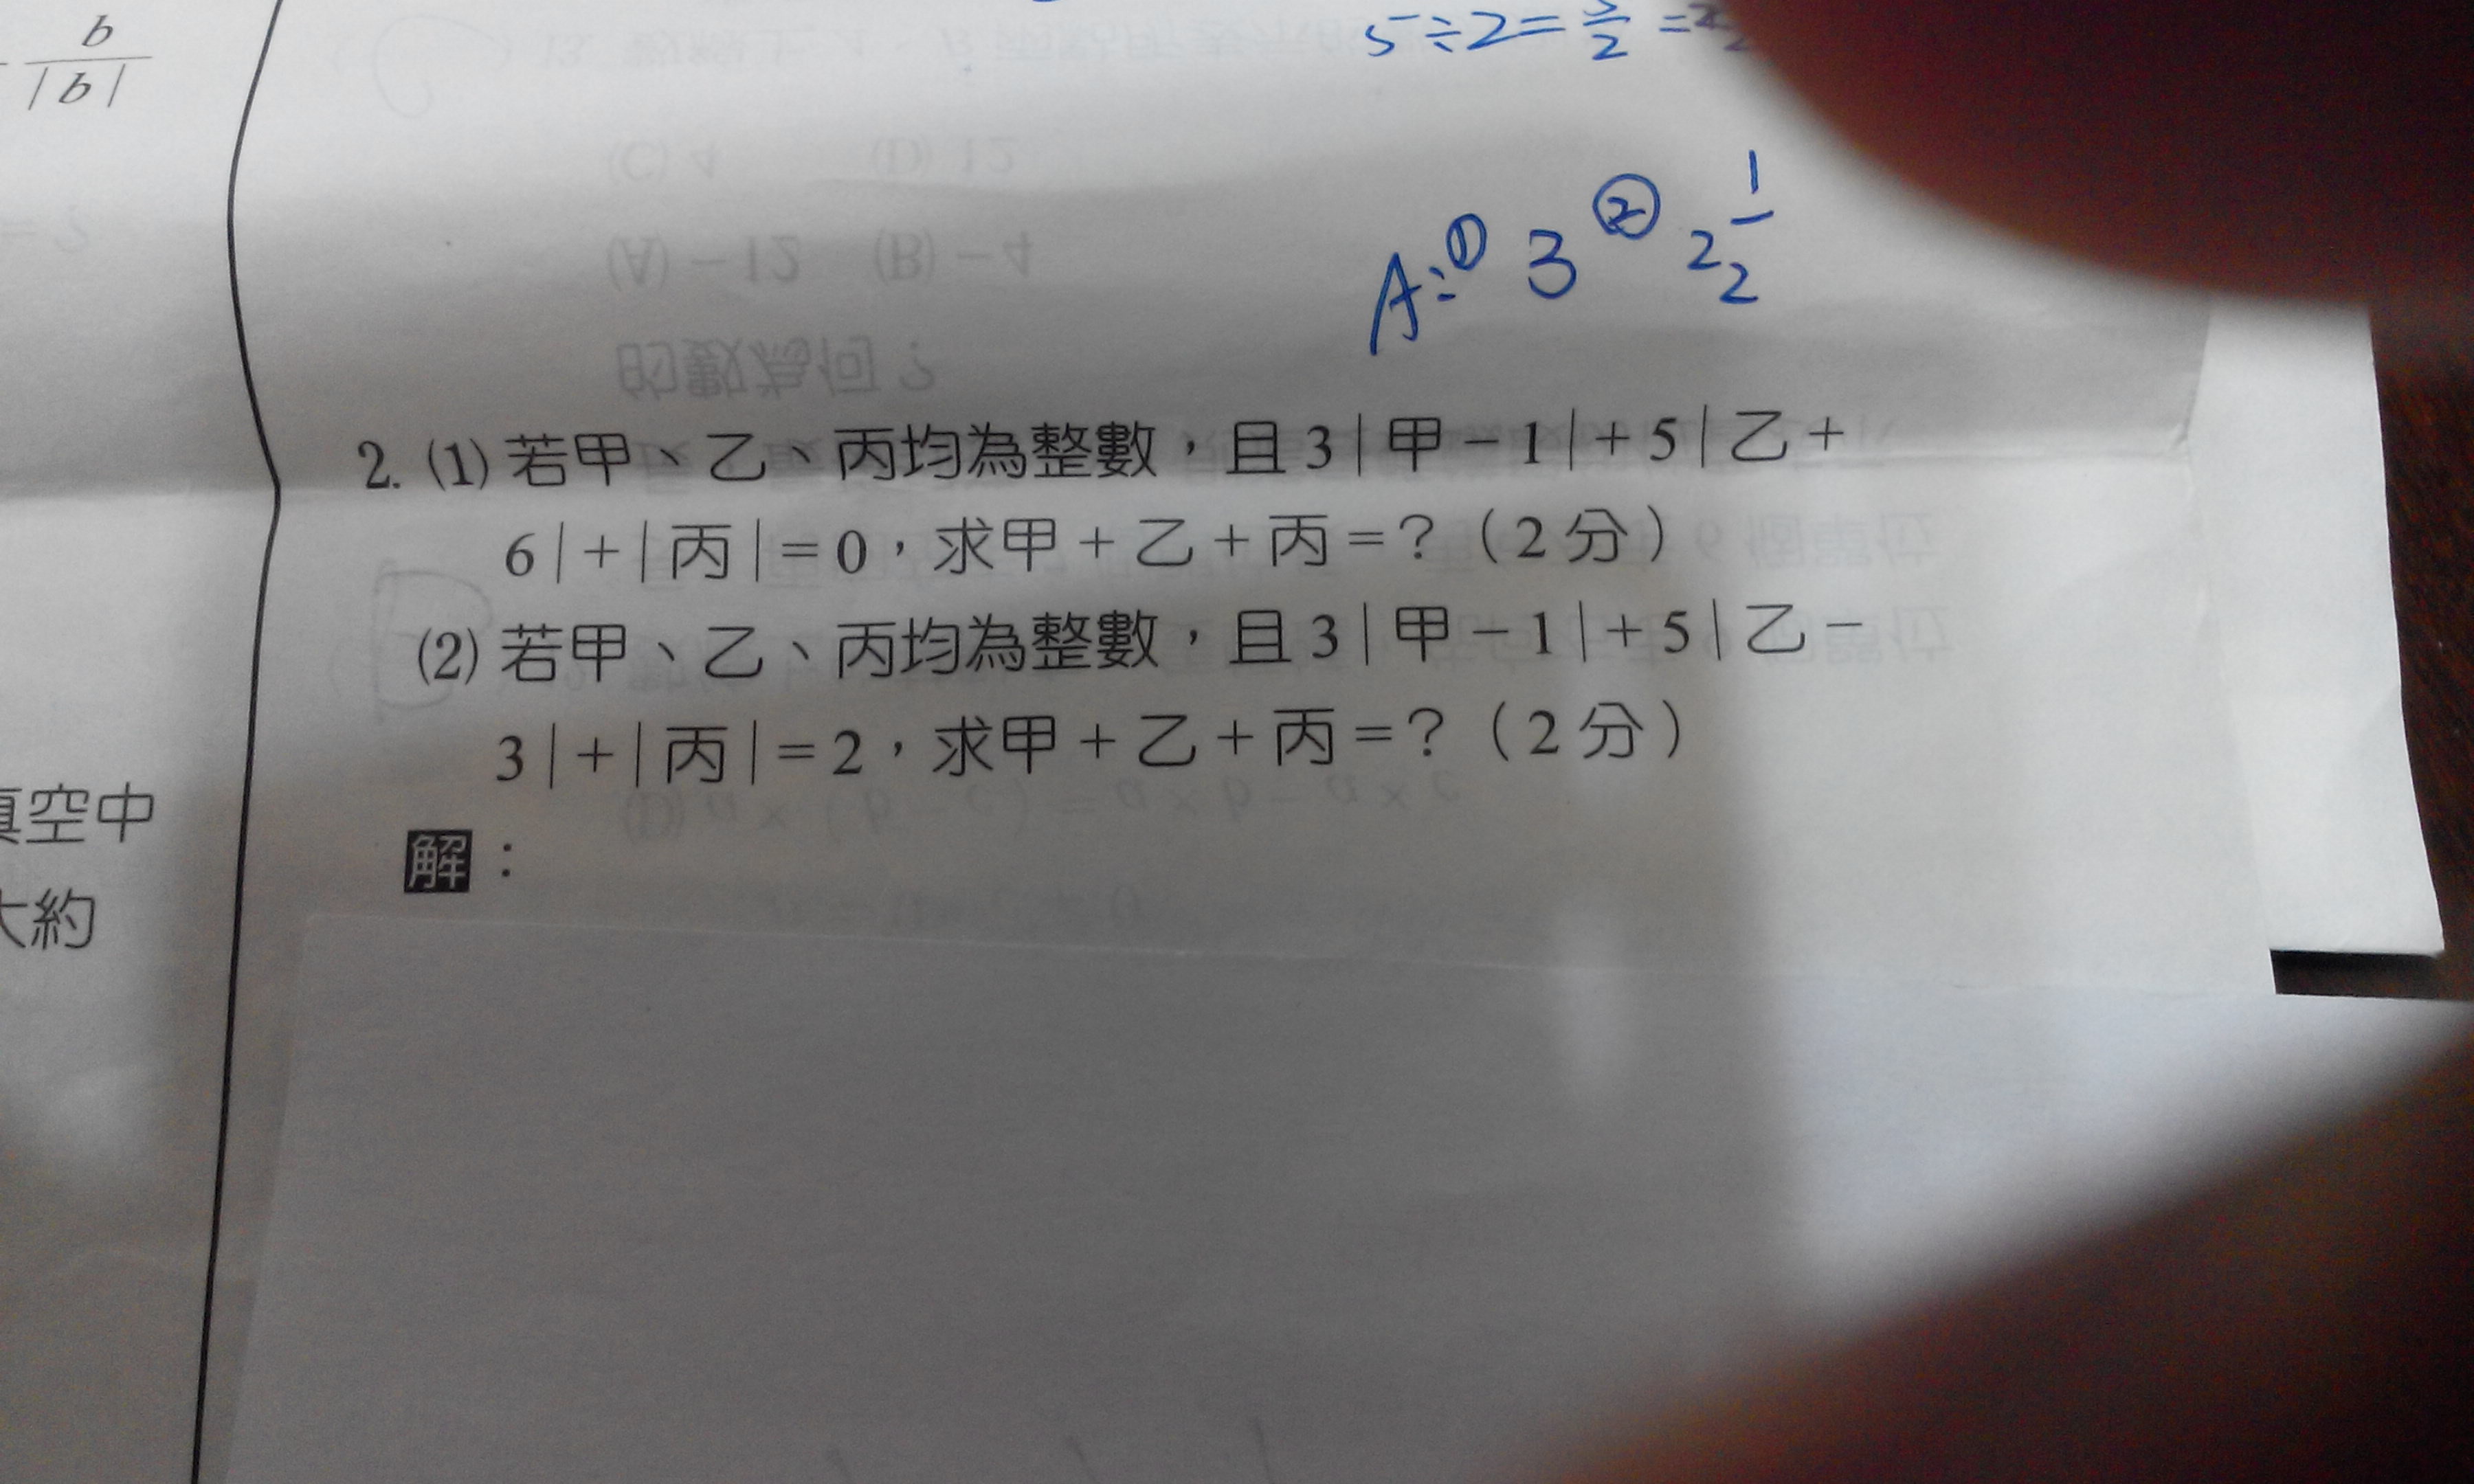 b
|b|
真空中
大約
5÷2=5/2=
A:① 3 ② 2 1/2
2. (1) 若甲、乙、丙均為整數，且 3|甲－1|＋5|乙＋
6|＋|丙|＝0，求甲＋乙＋丙＝？（2 分）
(2) 若甲、乙、丙均為整數，且 3|甲－1|＋5|乙－
3|＋|丙|＝2，求甲＋乙＋丙＝？（2 分）
解：